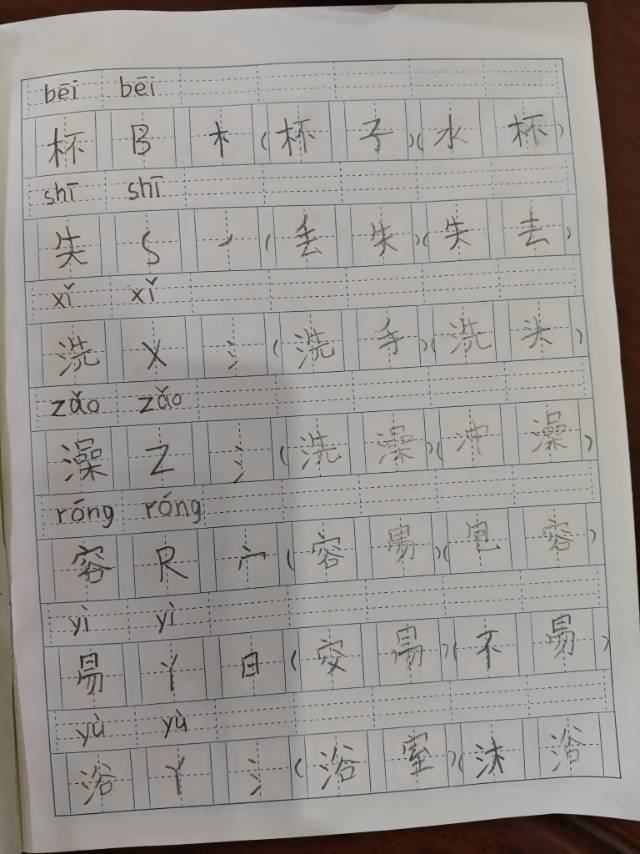 bēi bēi
杯 B 木 (杯 子)(水 杯)
shī shī
失 S 丿 (丢 失)(失 去)
xǐ xǐ
洗 X 氵 (洗 手)(洗 头)
zǎo zǎo
澡 Z 氵 (洗 澡)(冲 澡)
róng róng
容 R 宀 (容 易)( 容)
yì yì
易 Y 日 (安 易)(不 易)
yù yù
浴 Y 氵 (浴 室)(沐 浴)